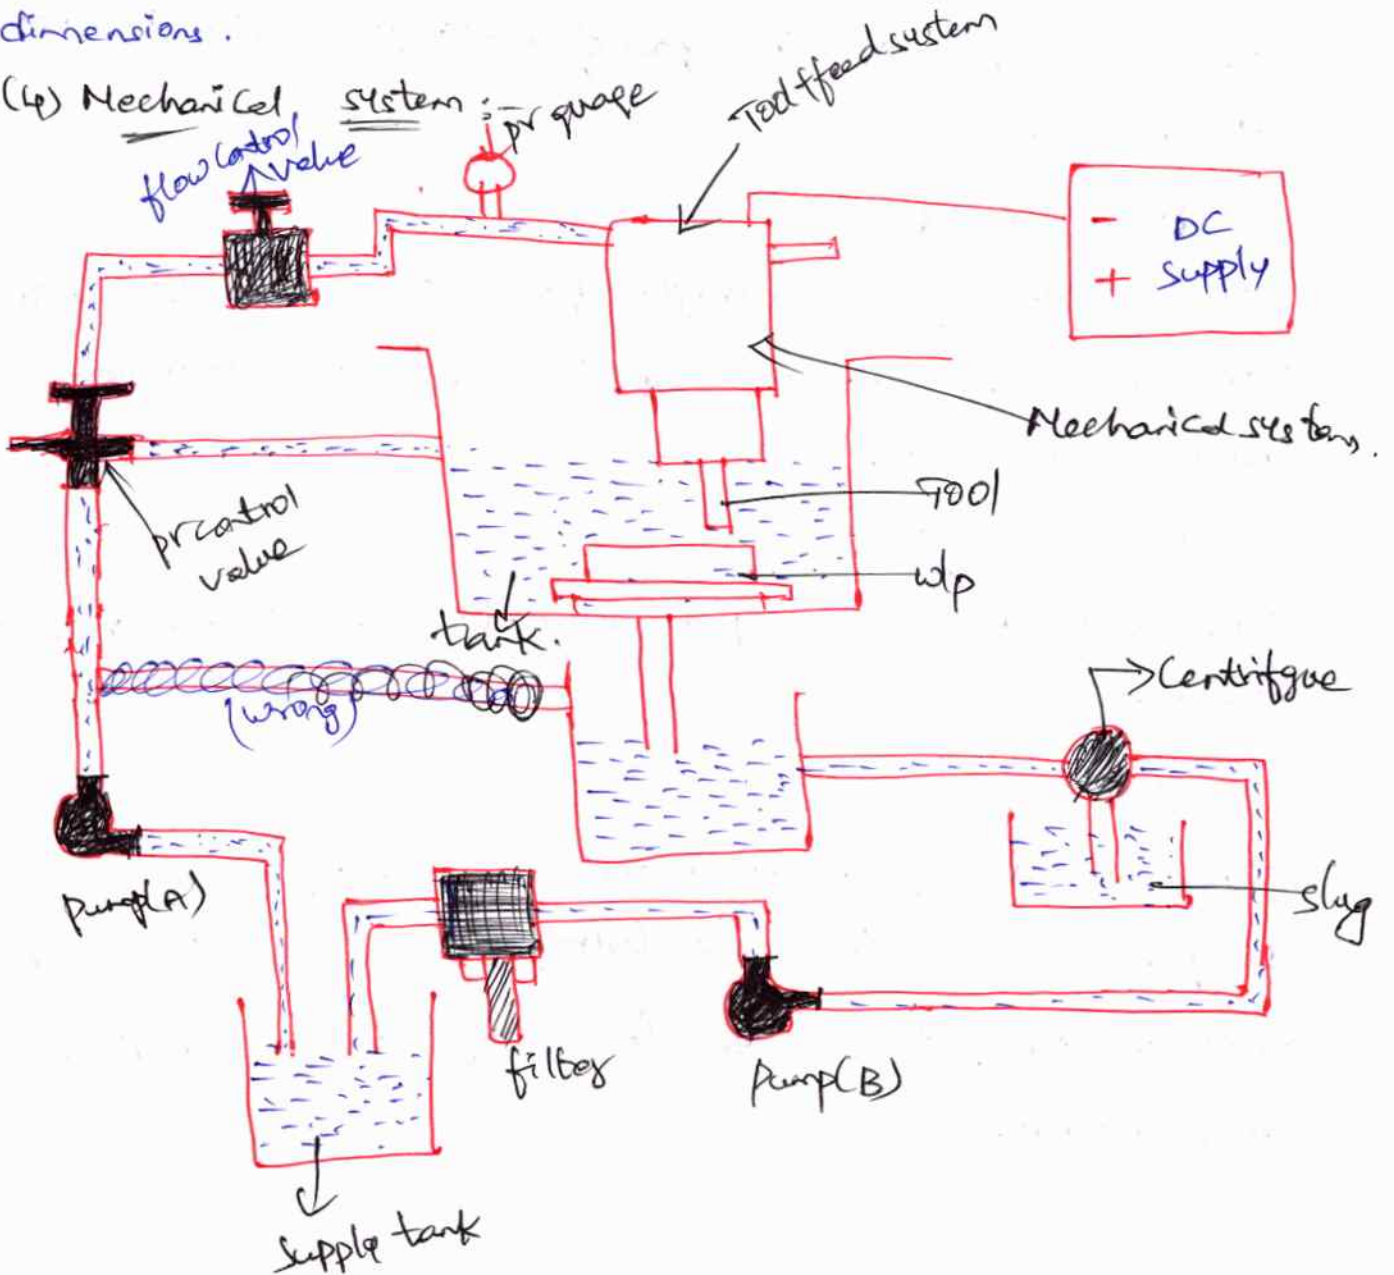 dimensions.
(4) Mechanical system :-
flow control
valve
pr guage
Tool feed system
-
+
DC
supply
Mechanical system.
pr control
valve
Tool
w/p
tank.
(wrong)
Centrifgue
slug
pump(A)
filter
pump(B)
Supply tank